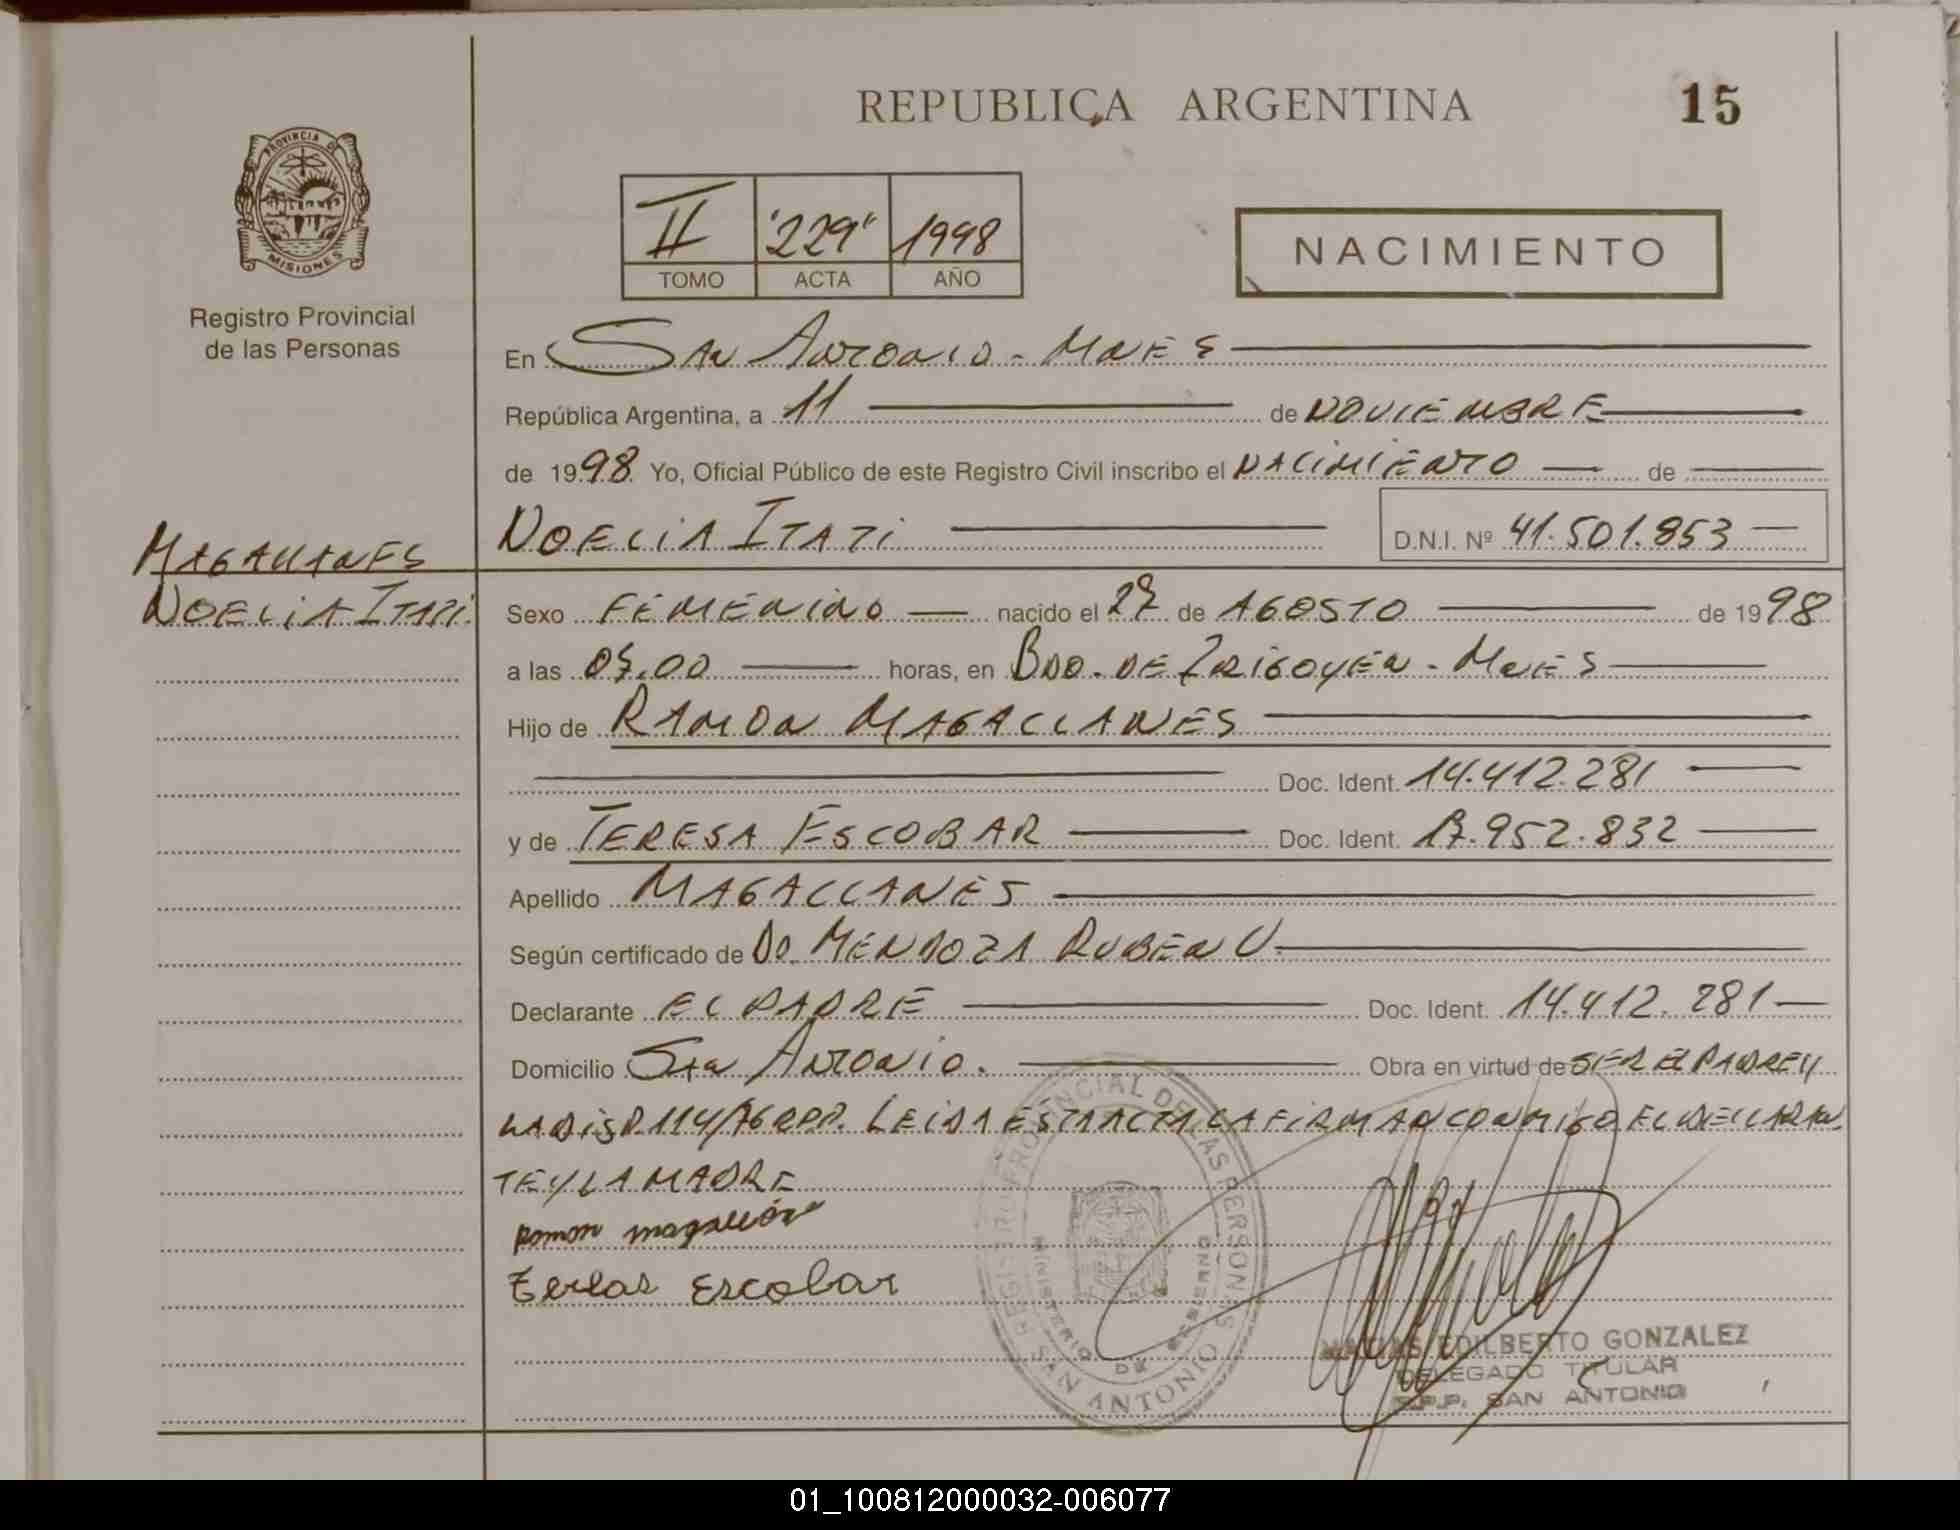 REPUBLICA ARGENTINA
15
PROVINCIA DE
MISIONES
Registro Provincial
de las Personas
II "229" 1998
TOMO ACTA AÑO
NACIMIENTO
En SAN ANTONIO - MNES
República Argentina, a 11 de NOVIEMBRE
de 1998 Yo, Oficial Público de este Registro Civil inscribo el NACIMIENTO de
NOELIA ITATI D.N.I. Nº 41.501.853
MAGALLANES
NOELIA ITATI.
Sexo FEMENINO nacido el 27 de AGOSTO de 1998
a las horas, en BDO. DE IRIGOYEN - MNES
Hijo de RAMON MAGALLANES
Doc. Ident. 14.412.281
y de TERESA ESCOBAR Doc. Ident. 17.952.832
Apellido MAGALLANES
Según certificado de MENDOZA RUBEN
Declarante EL PADRE Doc. Ident. 14.412.281
Domicilio San ANTONIO. Obra en virtud de SER EL PADRE Y
LA DISP. 114/76 RPP. LEIDA ESTA ACTA LA FIRMAN CONMIGO EL DECLARAN
TE Y LA MADRE
Ramon
Escobar
REGISTRO PROVINCIAL DE LAS PERSONAS
MINISTERIO DE GOBIERNO
SAN ANTONIO
MATIAS EDILBERTO GONZALEZ
DELEGADO TITULAR
R.P.P. SAN ANTONIO
01_100812000032-006077